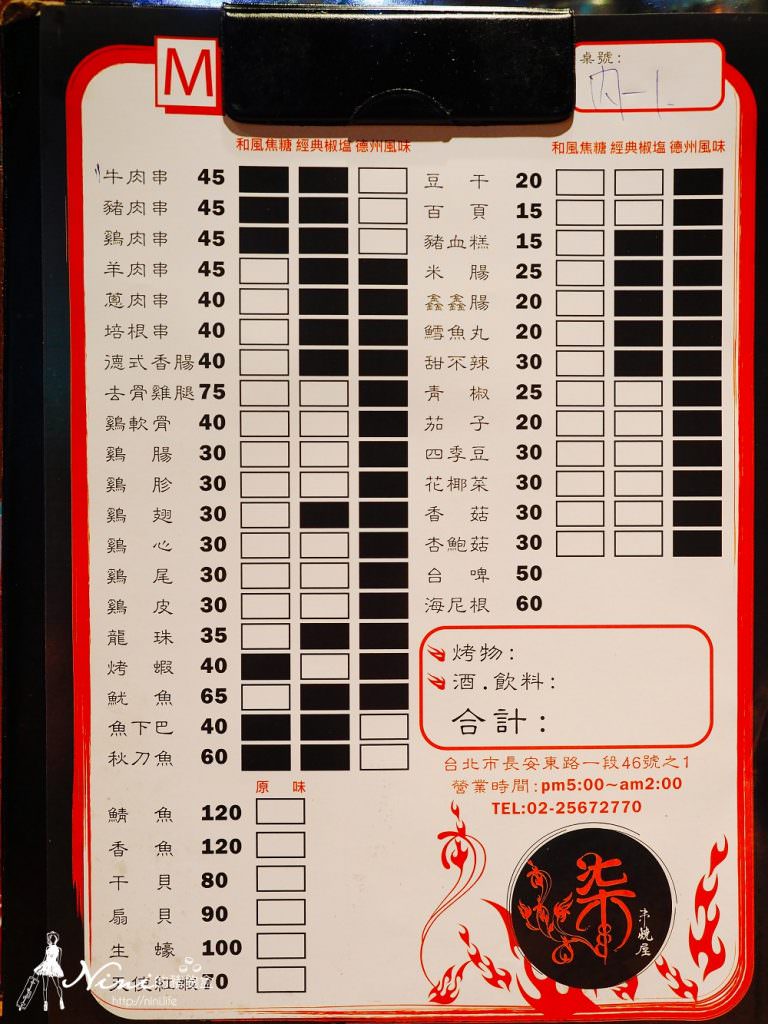 M
桌號:
內一1.
和風焦糖 經典椒塩 德州風味
牛肉串 45
豬肉串 45
鷄肉串 45
羊肉串 45
蔥肉串 40
培根串 40
德式香腸 40
去骨雞腿 75
鷄軟骨 40
鷄腸 30
鷄胗 30
鷄翅 30
鷄心 30
鷄尾 30
鷄皮 30
龍珠 35
烤蝦 40
魷魚 65
魚下巴 40
秋刀魚 60
原味
鯖魚 120
香魚 120
干貝 80
扇貝 90
生蠔 100
天使紅蝦 70
和風焦糖 經典椒塩 德州風味
豆干 20
百頁 15
豬血糕 15
米腸 25
鑫鑫腸 20
鱈魚丸 20
甜不辣 30
青椒 25
茄子 20
四季豆 30
花椰菜 30
香菇 30
杏鮑菇 30
台啤 50
海尼根 60
烤物:
酒.飲料:
合計:
台北市長安東路一段46號之1
營業時間:pm5:00~am2:00
TEL:02-25672770
柒
串燒屋
Nini
http://nini.life